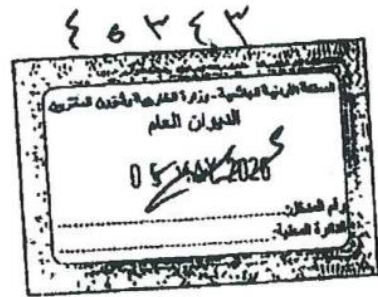 ٤٥٣٤٣
المملكة الأردنية الهاشمية - وزارة الخارجية وشؤون المغتربين
الديوان العام
05 2026
رقم المسلسل:
الدائرة المعنية: